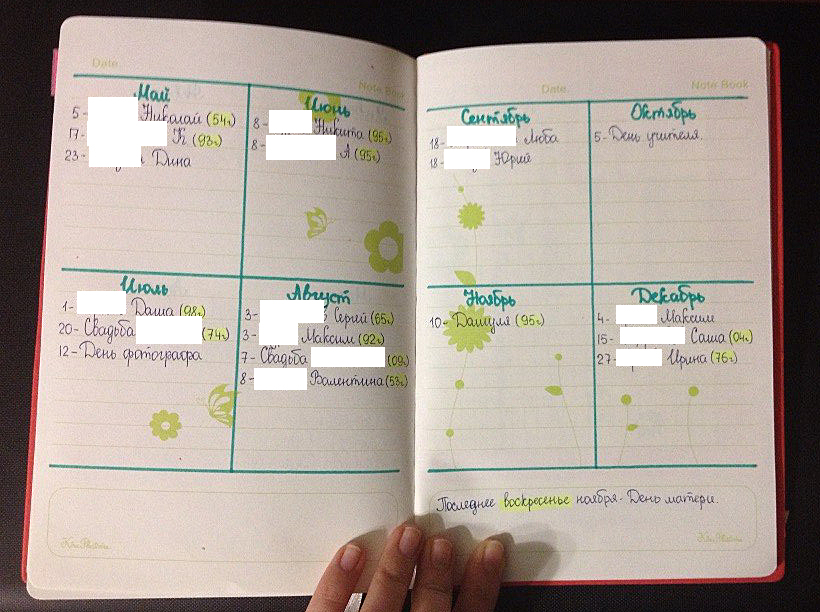 Date
Note Book
Май
5- Николай (54г)
17- К (93г)
23- Дина
Июнь
8- Никита (95г)
8- А (95г)
Июль
1- Даша (98г)
20- Свадьба (74г)
12- День фотографа
Август
3- Сергей (65г)
3- Максим (92г)
7- Свадьба (09г)
8- Валентина (53г)
Date
Note Book
Сентябрь
18- Люба
18- Юрий
Октябрь
5- День учителя.
Ноябрь
10- Дашуля (95г)
Декабрь
4- Максим
15- Саша (04г)
27- Ирина (76г)
Последнее воскресенье ноября- День матери.